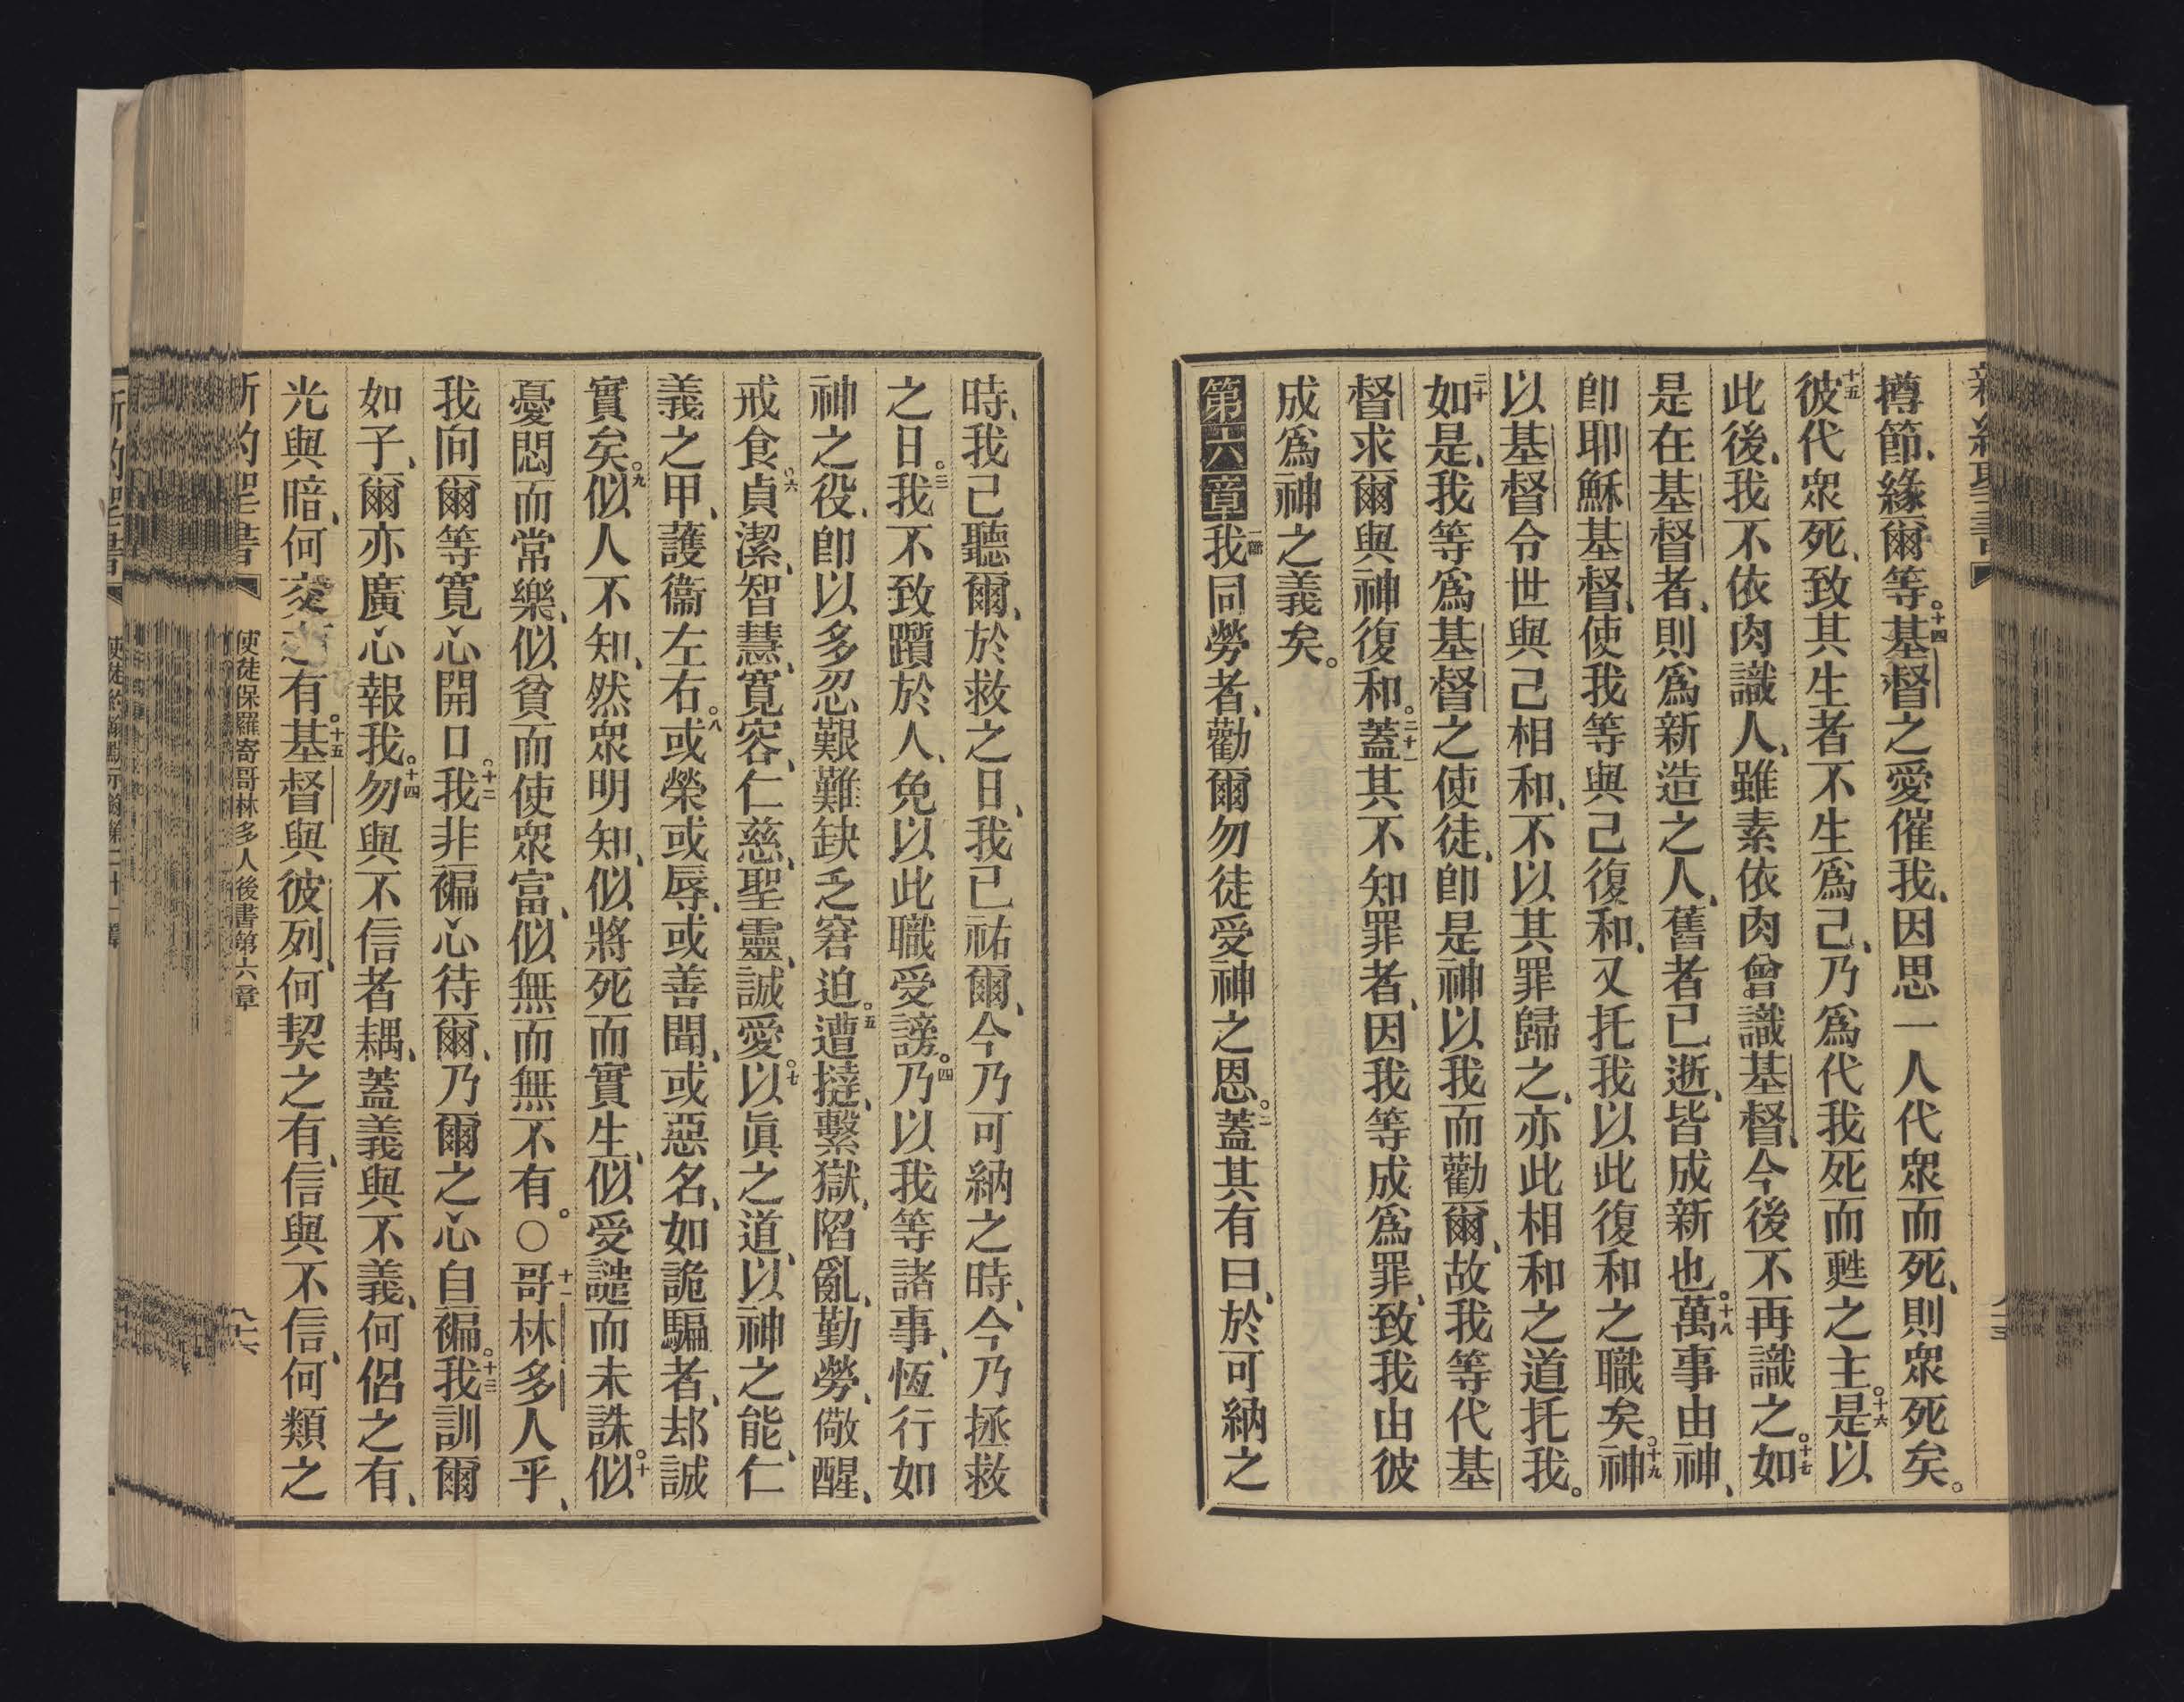 撙節、緣爾等。十四基督之愛催我、因思一人代衆而死、則衆死矣。
十五彼代衆死、致其生者不生爲己、乃爲代我死而甦之主。十六是以
此後、我不依肉識人、雖素依肉曾識基督、今後不再識之。十七如
是在基督者、則爲新造之人、舊者已逝、皆成新也。十八萬事由神、
卽耶穌基督、使我等與己復和、又托我以此復和之職矣。十九神
以基督令世與己相和、不以其罪歸之、亦此相和之道托我。
二十如是、我等爲基督之使徒、卽是神以我而勸爾、故我等代基
督求爾與神復和。二十一蓋其不知罪者、因我等成爲罪、致我由彼
成爲神之義矣。
第六章一節我同勞者、勸爾勿徒受神之恩。二蓋其有曰、於可納之
時、我已聽爾、於救之日、我已祐爾、今乃可納之時、今乃拯救
之日。三我不致躓於人、免以此職受謗。四乃以我等諸事、恆行如
神之役、卽以多忍艱難缺乏窘迫。五遭撻、繫獄、陷亂、勤勞、儆醒、
戒食。六貞潔、智慧、寬容、仁慈、聖靈、誠愛。七以眞之道、以神之能、仁
義之甲、護衞左右。八或榮或辱、或善聞、或惡名、如詭騙者、却誠
實矣。九似人不知、然衆明知、似將死而實生、似受譴而未誅。十似
憂悶而常樂、似貧而使衆富、似無而無不有。○十一哥林多人乎、
我向爾等寬心開口。十二我非褊心待爾、乃爾之心自褊。十三我訓爾
如子、爾亦廣心報我。十四勿與不信者耦、蓋義與不義、何侶之有、
光與暗、何交有。十五基督與彼列、何契之有、信與不信、何類之
新約聖書 使徒保羅寄哥林多人後書第六章 八十六